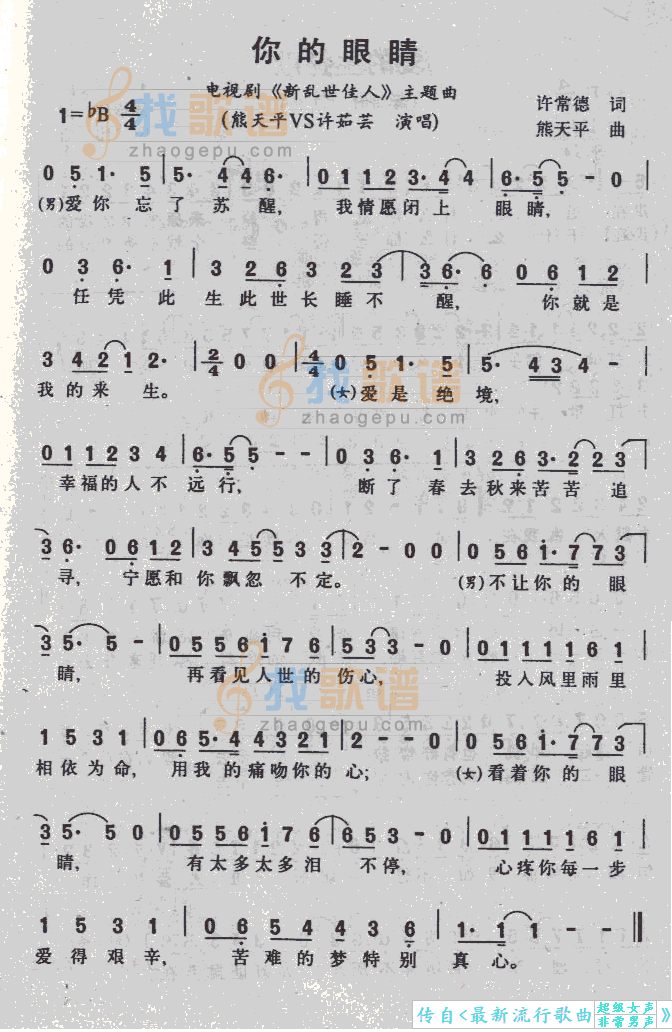 你的眼睛
电视剧《新乱世佳人》主题曲
1=♭B 4/4
(熊天平VS许茹芸 演唱)
许常德 词
熊天平 曲
找歌谱
zhaogepu.com
0 5 1· 5 | 5· 4 4 6· | 0 1 1 2 3· 4 4 | 6· 5 5 - 0 |
(男)爱你 忘了 苏醒, 我情愿闭上 眼睛,
0 3 6· 1 | 3 2 6 3 2 3 | 3 6· 6 0 6 1 2 |
任凭 此 生此世长睡不 醒, 你就是
3 4 2 1 2· | 2/4 0 0 | 4/4 0 5 1· 5 | 5· 4 3 4 - |
我的来 生。 (女)爱是 绝境,
找歌谱
zhaogepu.com
0 1 1 2 3 4 | 6· 5 5 - - | 0 3 6· 1 | 3 2 6 3· 2 2 3
幸福的人不 远行, 断了 春 去秋来苦苦 追
3 6· 0 6 1 2 | 3 4 5 5 3 3 | 2 - 0 0 | 0 5 6 1· 7 7 3
寻, 宁愿和 你飘忽 不定。 (男)不让你的 眼
3 5· 5 - | 0 5 5 6 1 7 6 | 5 3 3 - 0 | 0 1 1 1 1 6 1 |
睛, 再看见人世的 伤心, 投入风里雨里
找歌谱
zhaogepu.com
1 5 3 1 | 0 6 5· 4 4 3 2 1 | 2 - - 0 | 0 5 6 1· 7 7 3
相依为命, 用我的痛吻你的 心; (女)看着你的 眼
3 5· 5 0 | 0 5 5 6 1 7 6 | 6 5 3 - 0 | 0 1 1 1 1 6 1 |
睛, 有太多太多泪 不停, 心疼你每一步
1 5 3 1 | 0 6 5 4 4 3 6 | 1· 1 1 - ‖
爱得艰辛, 苦难的梦特别 真心。
传自<最新流行歌曲 超级女声 非常男声 》